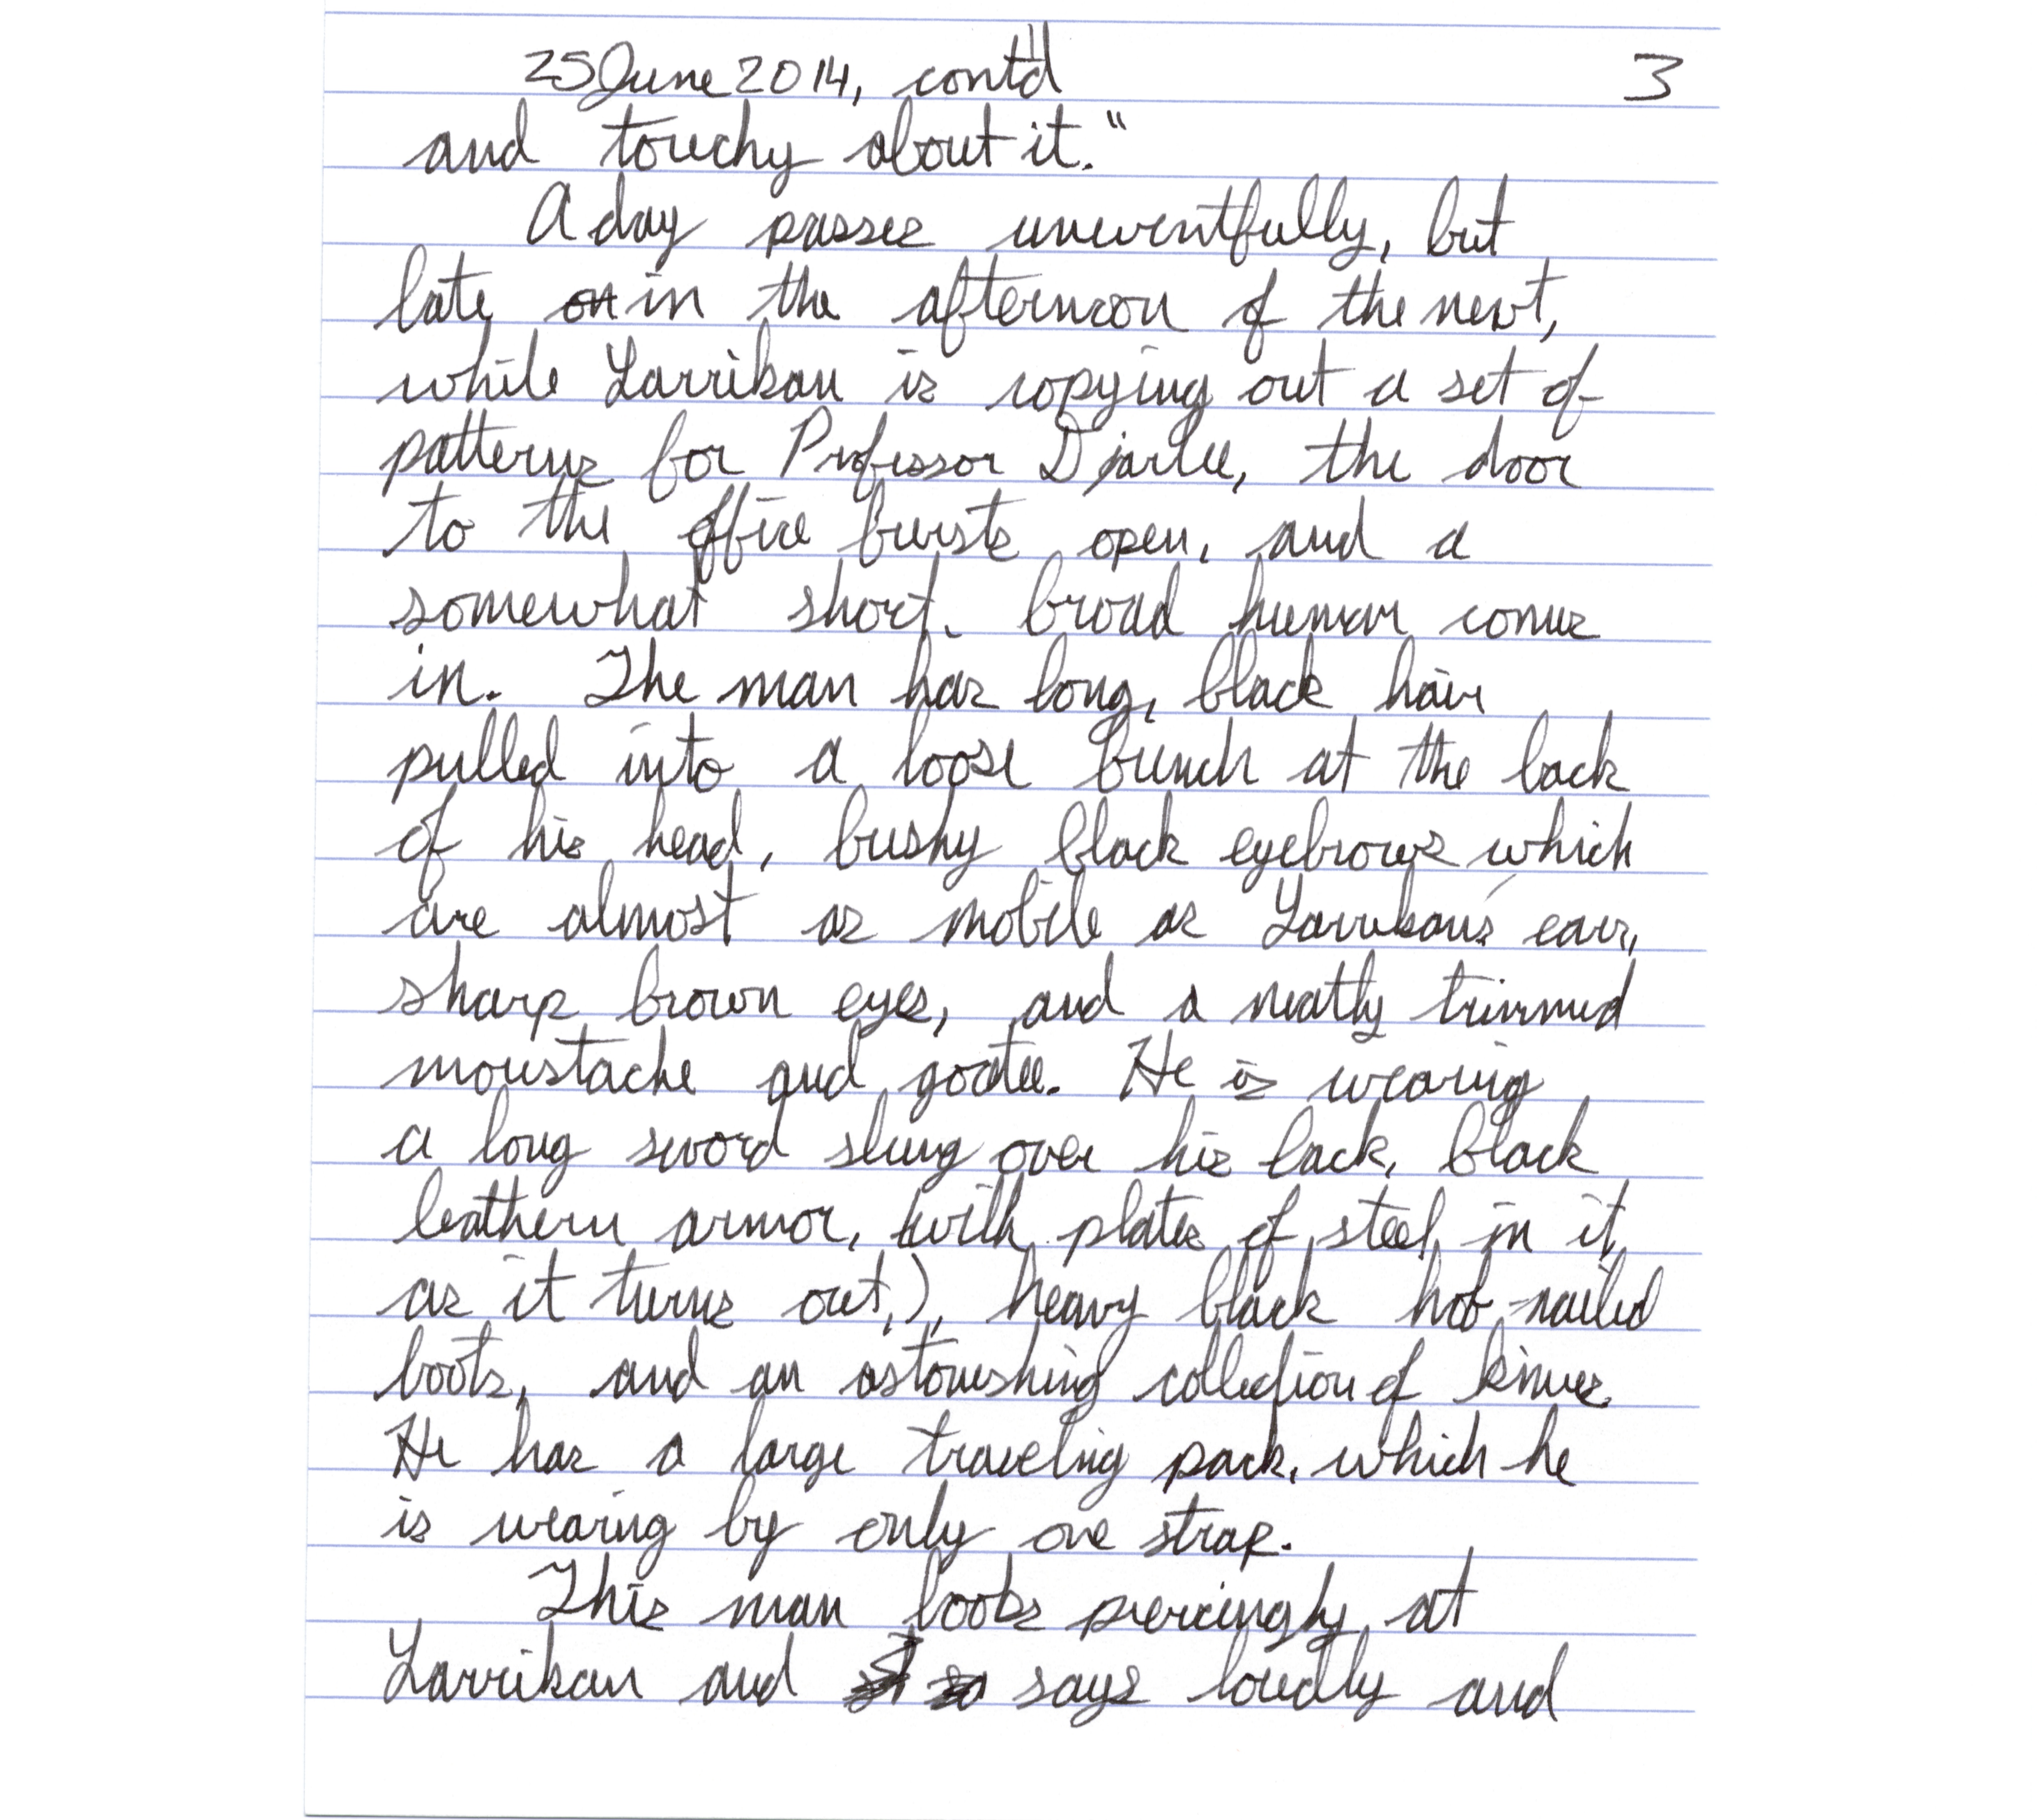 25 June 2014, cont'd 3
and touchy about it."
A day passes uneventfully, but
late on in the afternoon of the next,
while Larrikan is copying out a set of
patterns for Professor the door
to the office bursts open, and a
somewhat short, broad human comes
in. The man has long, black hair
pulled into a loose bunch at the back
of his head, bushy black eyebrows which
are almost as mobile as Larrikan's ears,
sharp brown eyes, and a neatly trimmed
moustache and goatee. He is wearing
a long sword slung over his back, black
leathern armor, (with plates of steel in it,
as it turns out,), heavy black hob-nailed
boots, and an astonishing collection of knives.
He has a large traveling pack, which he
is wearing by only one strap.
This man looks piercingly at
Larrikan and says loudly and